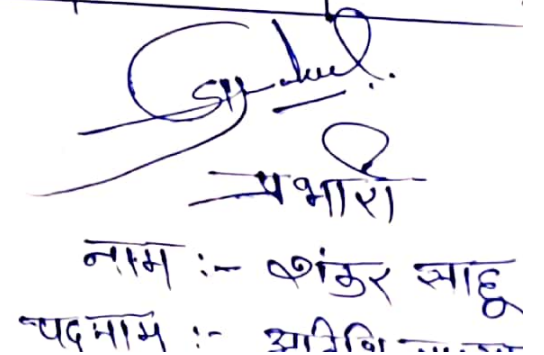 प्रभारी
नाम :- शंकर साहू
पदनाम :- अतिथि